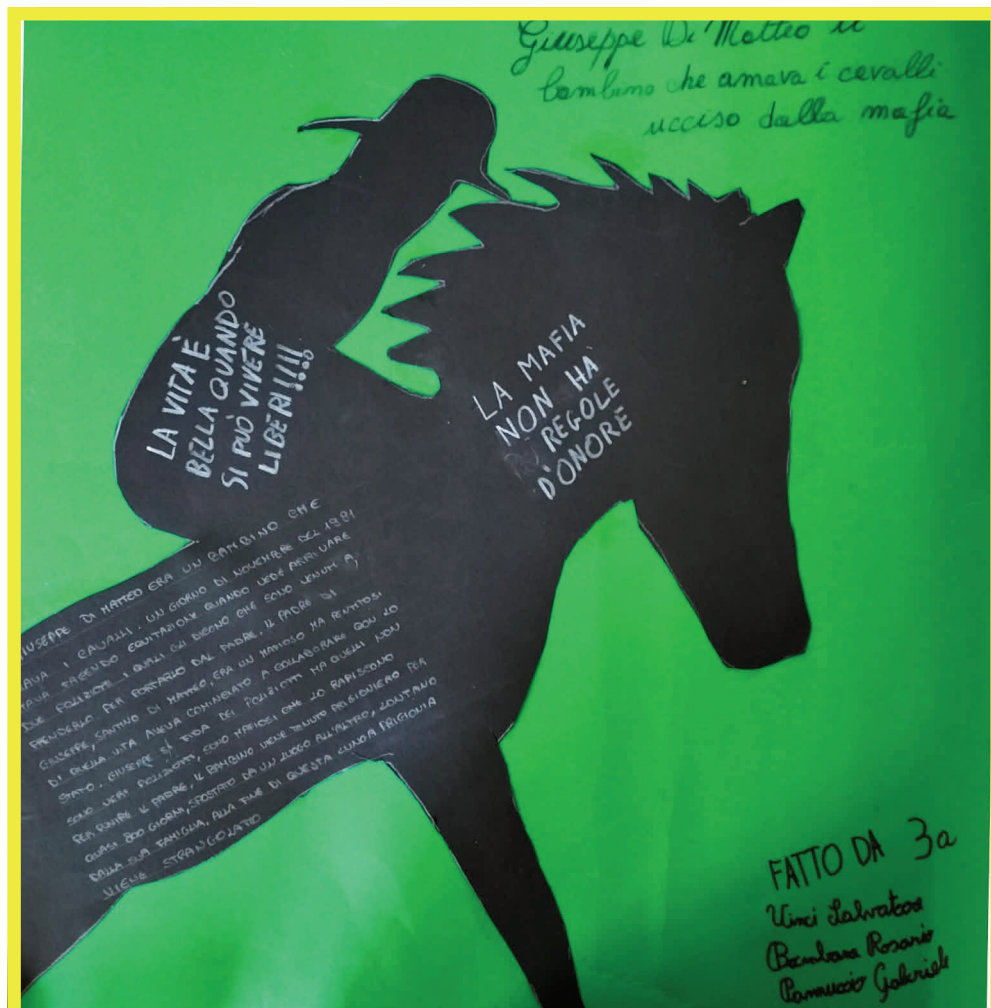 Giuseppe Di Matteo il
bambino che amava i cavalli
ucciso dalla mafia
LA VITA È
BELLA QUANDO
SI PUÒ VIVERE
LIBERI!!!!
LA MAFIA
NON HÀ
REGOLE
D'ONORE
IUSEPPE DI MATTEO ERA UN BAMBINO CHE
AVA I CAVALLI. UN GIORNO DI NOVEMBRE DEL 1981
TAVA FACENDO EQUITAZIONE QUANDO VEDE ARRIVARE
DUE POLIZIOTTI I QUALI GLI DICONO CHE SONO VENUTI A
PRENDERLO PER PORTARLO DAL PADRE. IL PADRE DI
GIUSEPPE, SANTINO DI MATTEO, ERA UN MAFIOSO MA PENTITOSI
DI QUELLA VITA AVEVA COMINCIATO A COLLABORARE CON LO
STATO. GIUSEPPE SI FIDA DEI POLIZIOTTI MA QUELLI NON
SONO VERI POLIZIOTTI, SONO MAFIOSI CHE LO RAPISCONO
PER PUNIRE IL PADRE. IL BAMBINO VIENE TENUTO PRIGIONIERO PER
QUASI 800 GIORNI, SPOSTATO DA UN LUOGO ALL'ALTRO, LONTANO
DALLA SUA FAMIGLIA. ALLA FINE DI QUESTA LUNGA PRIGIONIA
VIENE STRANGOLATO
FATTO DA 3a
Vinci Salvatore
Bambara Rosario
Pannuccio Gabriele